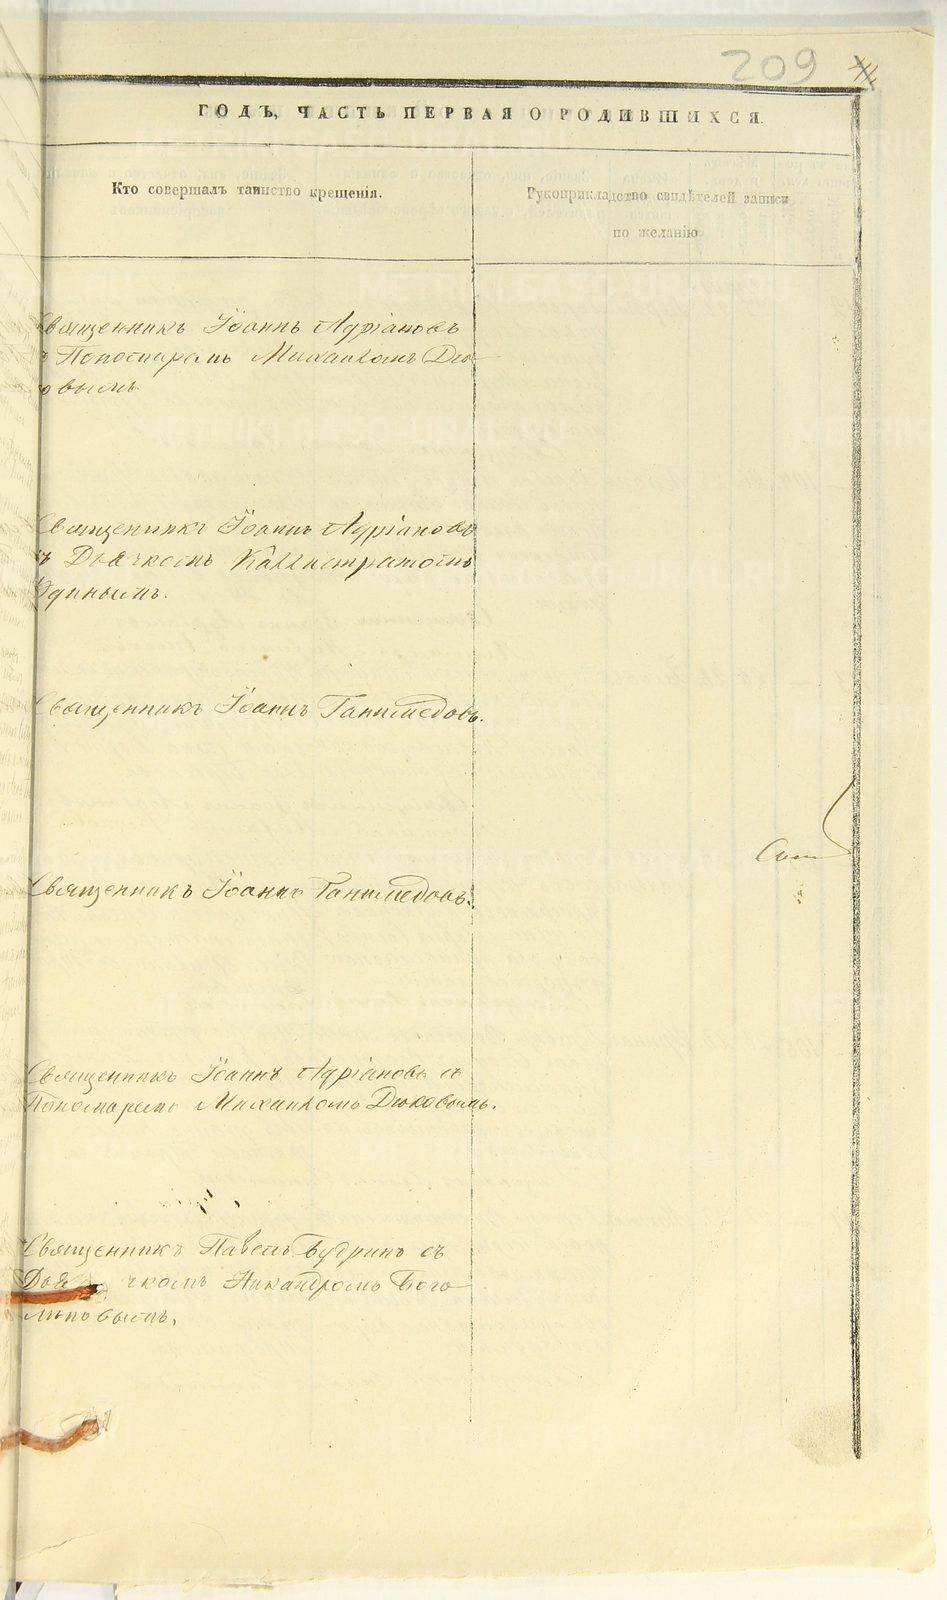 209
ГОДЪ, ЧАСТЬ ПЕРВАЯ О РОДИВШИХСЯ.
Кто совершалъ таинство крещенія.
Рукоприкладство свидѣтелей записи
по желанію
Священникъ Іоаннъ Адріановъ
съ Пономаремъ Михаиломъ Дю-
ковымъ
Священникъ Іоаннъ Адріановъ
съ Дьячкомъ Каллистратомъ
Удинымъ.
Священникъ Іоаннъ Ганимедовъ.
Священникъ Іоаннъ Ганимедовъ.
Священникъ Іоаннъ Адріановъ съ
Пономаремъ Михаиломъ Дюковымъ.
Священникъ Павелъ Будринъ съ
Дья чкомъ Никандромъ Бого-
мыповымъ.
METRIKI.GASO-URAL.RU